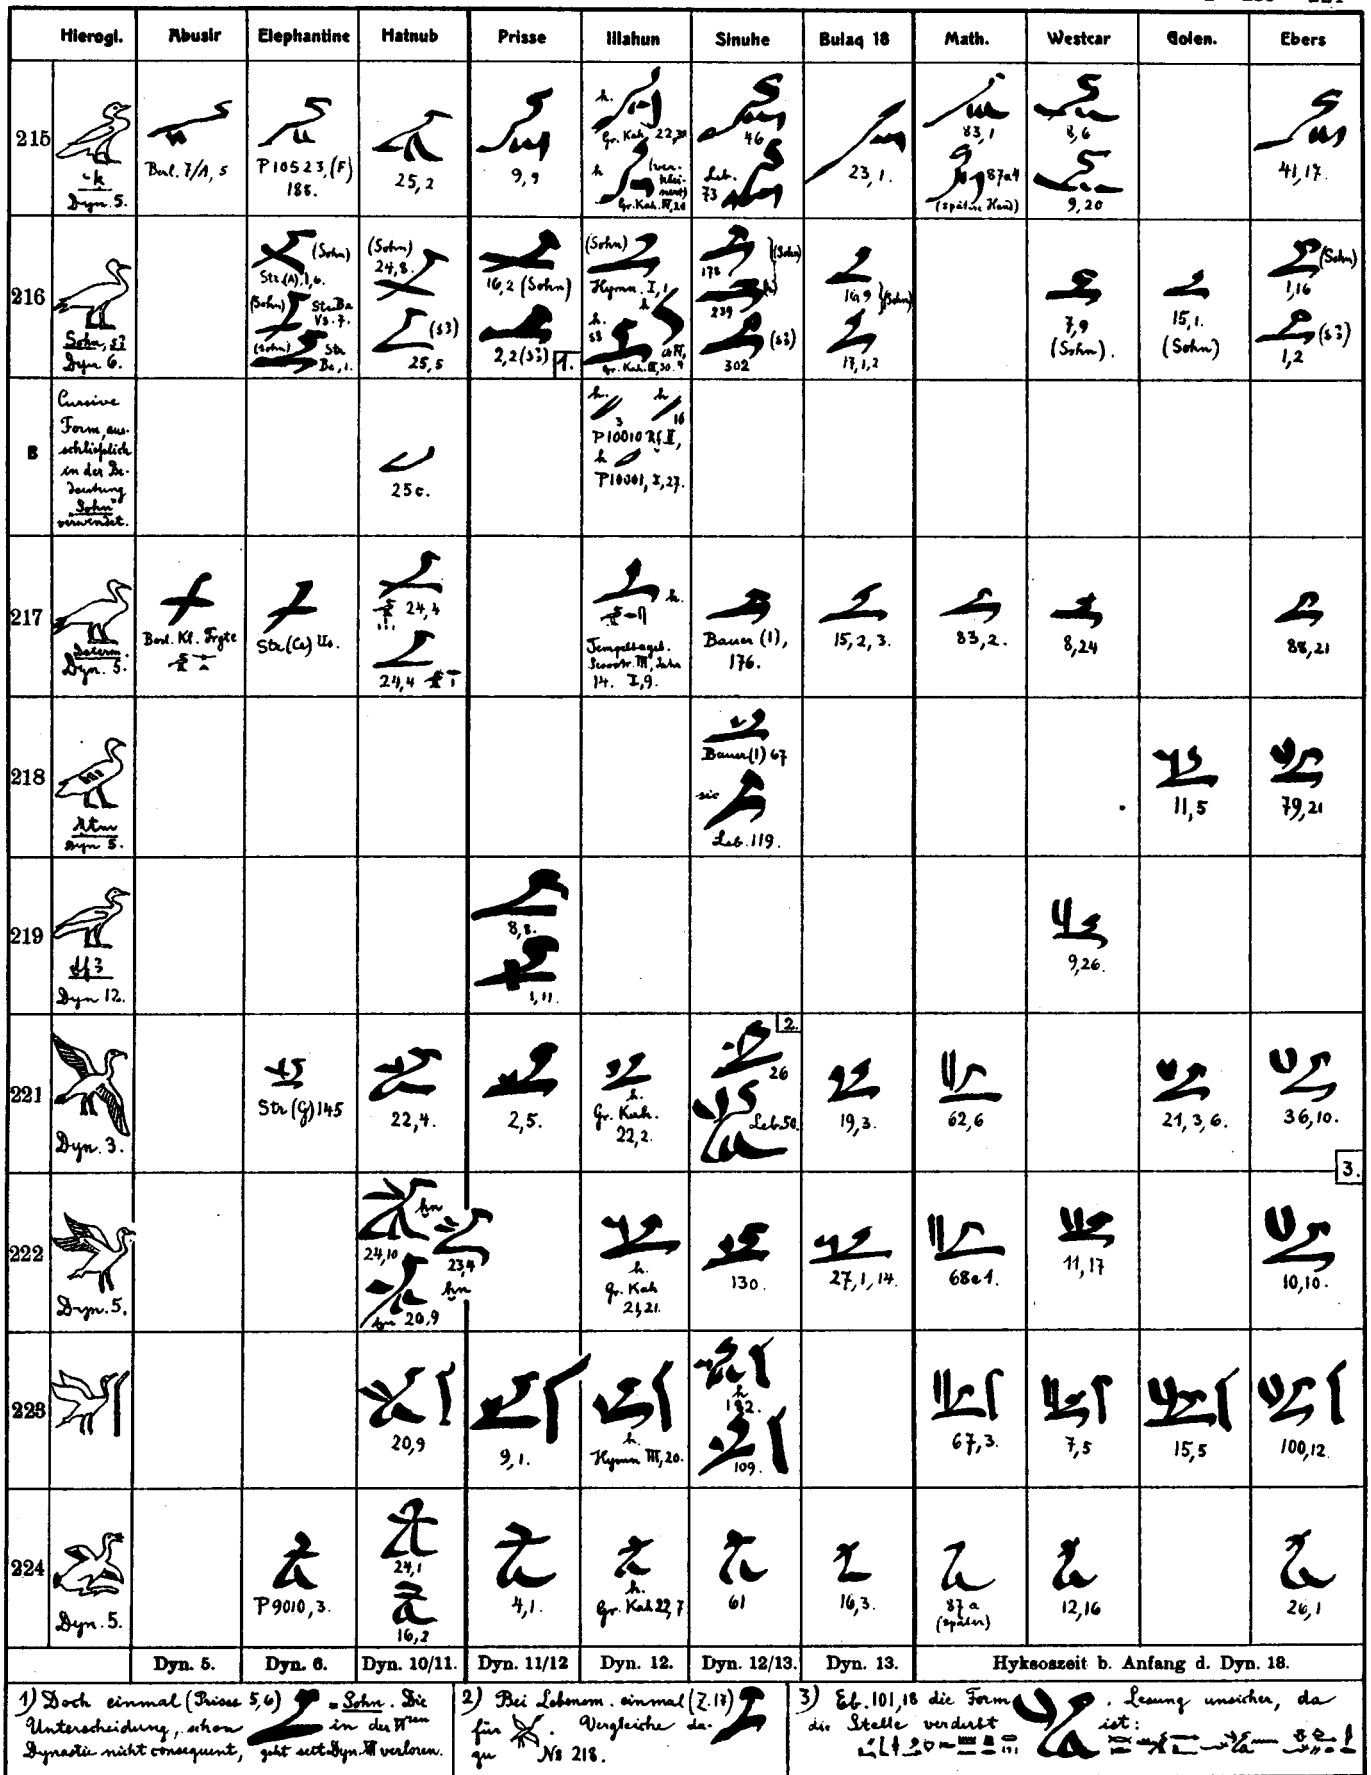 Hierogl. Abusir Elephantine Hatnub Prisse Illahun Sinuhe Bulaq 18 Math. Westcar Golen. Ebers
215
Dyn. 5.
Berl. 7/1, 5
P 10523, (F)
188.
25, 2
9, 9
h.
Gr. Kah. 22,
h
(ver-
klei-
nert)
Gr. Kah. IV, 20
46
Leb.
73
23, 1.
83, 1
87a4
(spätere Hand)
8, 6
9, 20
41, 17.
216
Sohn, s3
Dyn 6.
(Sohn)
Str. (A), 1, 6.
(Sohn) Str. Ba
Vs. 7.
(Sohn) Str
Be, 1.
(Sohn)
24, 8.
(s3)
25, 5
16, 2 (Sohn)
2, 2 (s3) 1.
(Sohn)
Hymn. I, 1
h
h.
s3
178 (Sohn)
239
302 (s3)
16, 9 (Sohn)
17, 1, 2
7, 9
(Sohn).
15, 1.
(Sohn)
(Sohn)
1, 16
(s3)
1, 2
B
Cursive
Form, aus-
schließlich
in der Be-
deutung
"Sohn"
verwendet.
25 c.
h. h
3 16
P 10010 Rf II,
h
P 10001, I, 27.
217
Determ.
Dyn. 5.
Berl. Kl. Frgte
Str (Ce) Us.
24, 4
24, 4
h.
Tempeltageb.
Sesostr. III, Jahr
14. I, 9.
Bauer (1),
176.
15, 2, 3.
83, 2.
8, 24
88, 21
218
Dyn 5.
Bauer (1) 67
sic
Leb. 119.
11, 5
79, 21
219
Dyn 12.
8, 8.
1, 11.
9, 26.
221
Dyn. 3.
Str (G) 145
22, 4.
2, 5.
h.
Gr. Kah.
22, 2.
2.
26
Leb. 50.
19, 3.
62, 6
21, 3, 6.
36, 10.
222
Dyn. 5.
24, 10 hn
23, 4
hn
hn 20, 9
h.
Gr. Kah
21, 21.
130.
27, 1, 14.
68e1.
11, 17
3.
10, 10.
223
20, 9
9, 1.
h.
Hymn III, 20.
h
182.
109.
67, 3.
7, 5
15, 5
100, 12.
224
Dyn. 5.
P 9010, 3.
24, 1
16, 2
4, 1.
h.
Gr. Kah 22, 7
61
16, 3.
87 a
(später)
12, 16
26, 1
Dyn. 5. Dyn. 6. Dyn. 10/11. Dyn. 11/12 Dyn. 12. Dyn. 12/13. Dyn. 13. Hyksoszeit b. Anfang d. Dyn. 18.
1) Doch einmal (Prisse 5, 6) = Sohn. Die
Unterscheidung, schon in der
Dynastie nicht consequent, geht seit Dyn. verloren.
2) Bei Lebensm. einmal (Z. 17)
für . Vergleiche da-
zu No 218.
3) Eb. 101, 18 die Form . Lesung unsicher, da
die Stelle verderbt ist: